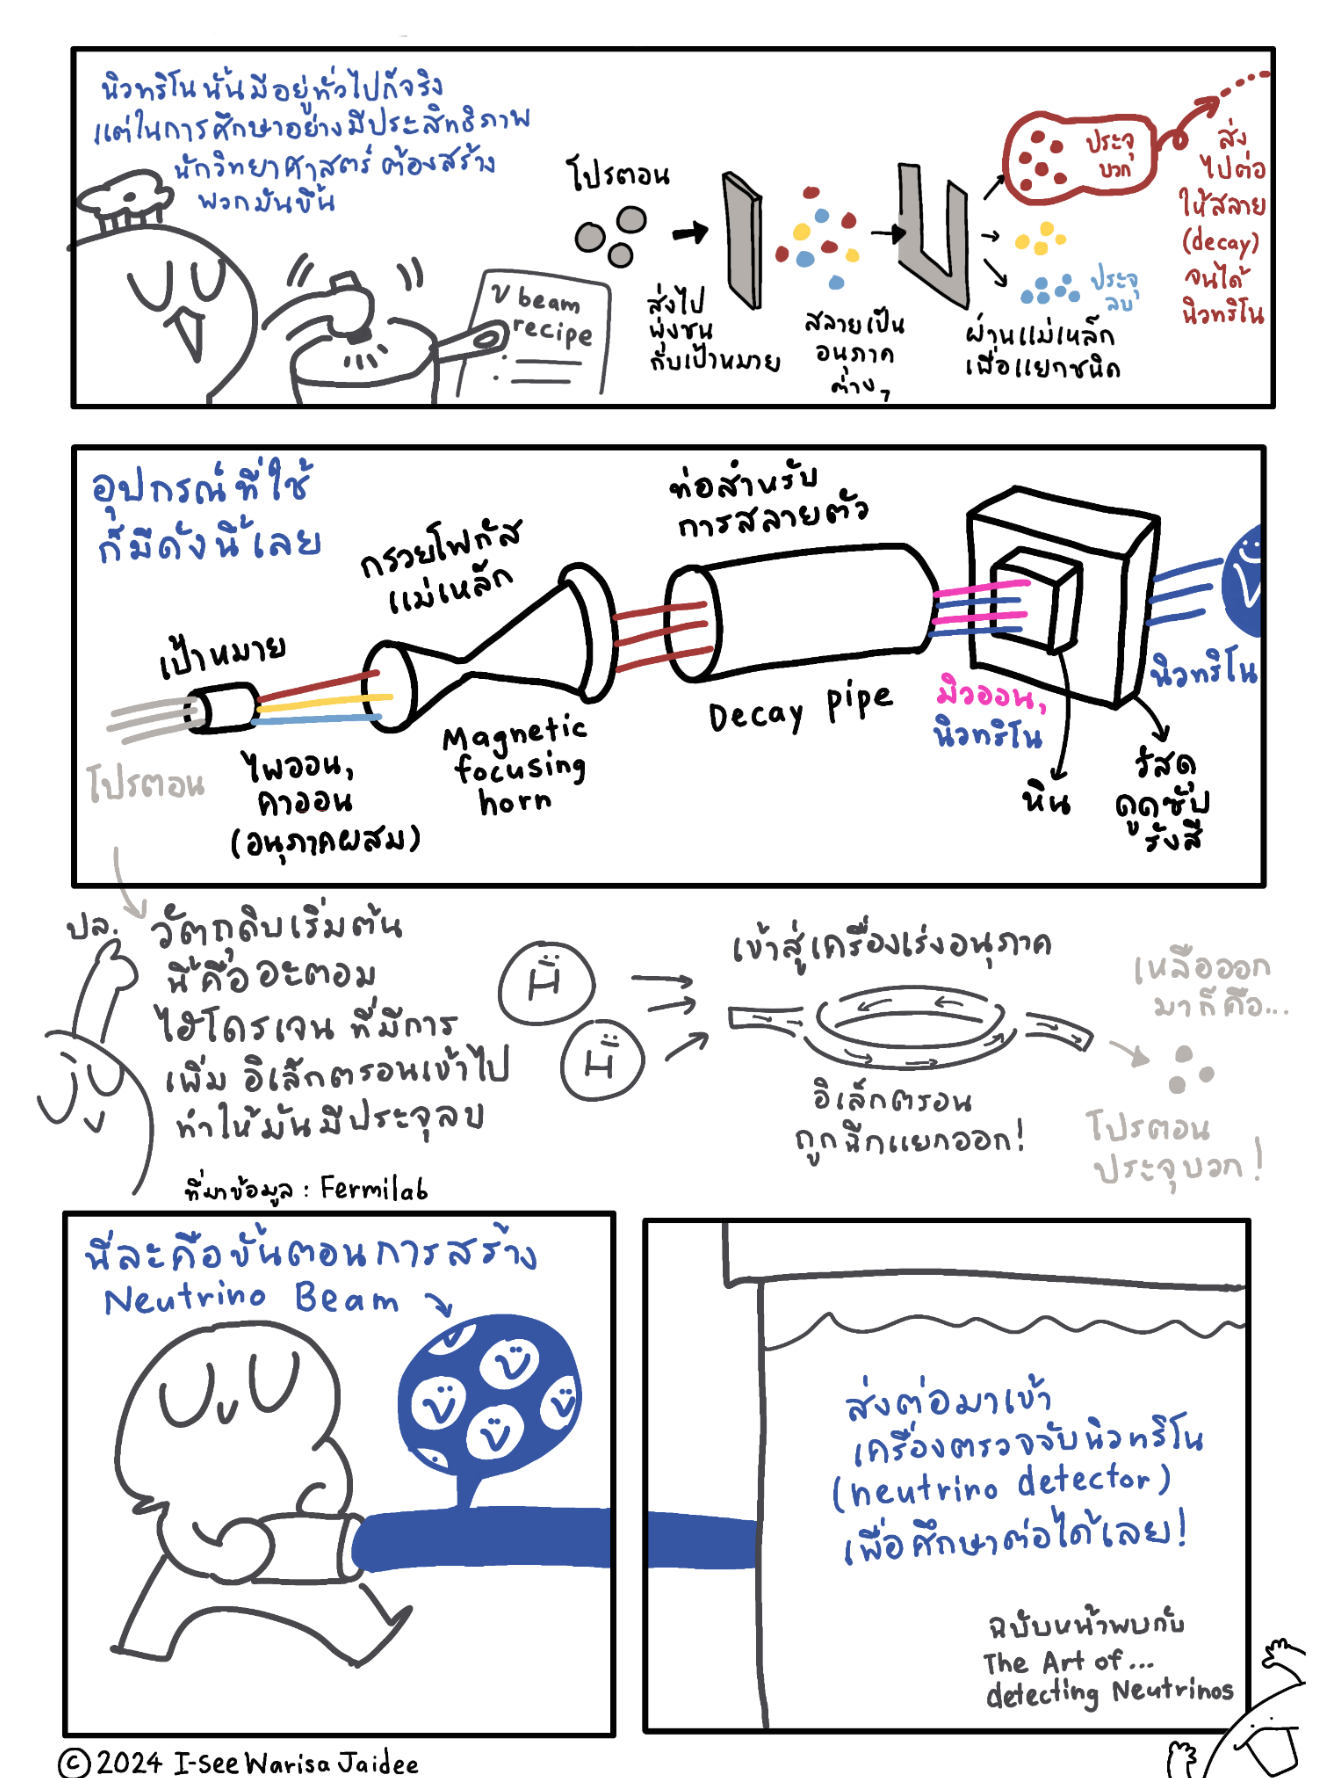 นิวทริโนนั้นมีอยู่ทั่วไปก็จริง
แต่ในการศึกษาอย่างมีประสิทธิภาพ
นักวิทยาศาสตร์ ต้องสร้าง
พวกมันขึ้น
ν beam
recipe
โปรตอน
ส่งไป
พุ่งชน
กับเป้าหมาย
สลายเป็น
อนุภาค
ต่างๆ
ผ่านแม่เหล็ก
เพื่อแยกชนิด
ประจุ
บวก
ประจุ
ลบ
ส่ง
ไปต่อ
ให้สลาย
(decay)
จนได้
นิวทริโน
อุปกรณ์ที่ใช้
ก็มีดังนี้เลย
โปรตอน
เป้าหมาย
ไพออน,
คาออน
(อนุภาคผสม)
กรวยโฟกัส
แม่เหล็ก
Magnetic
focusing
horn
ท่อสำหรับ
การสลายตัว
Decay pipe
มิวออน,
นิวทริโน
หิน
วัสดุ
ดูดซับ
รังสี
นิวทริโน
ปล. วัตถุดิบเริ่มต้น
นี้คืออะตอม
ไฮโดรเจน ที่มีการ
เพิ่ม อิเล็กตรอนเข้าไป
ทำให้มันมีประจุลบ
ที่มาข้อมูล : Fermilab
H
H
เข้าสู่เครื่องเร่งอนุภาค
อิเล็กตรอน
ถูกฉีกแยกออก!
เหลือออก
มาก็คือ...
โปรตอน
ประจุบวก!
นี่ละคือขั้นตอนการสร้าง
Neutrino Beam
ส่งต่อมาเข้า
เครื่องตรวจจับนิวทริโน
(neutrino detector)
เพื่อศึกษาต่อได้เลย!
ฉบับหน้าพบกับ
The Art of...
detecting Neutrinos
© 2024 I-See Warisa Jaidee